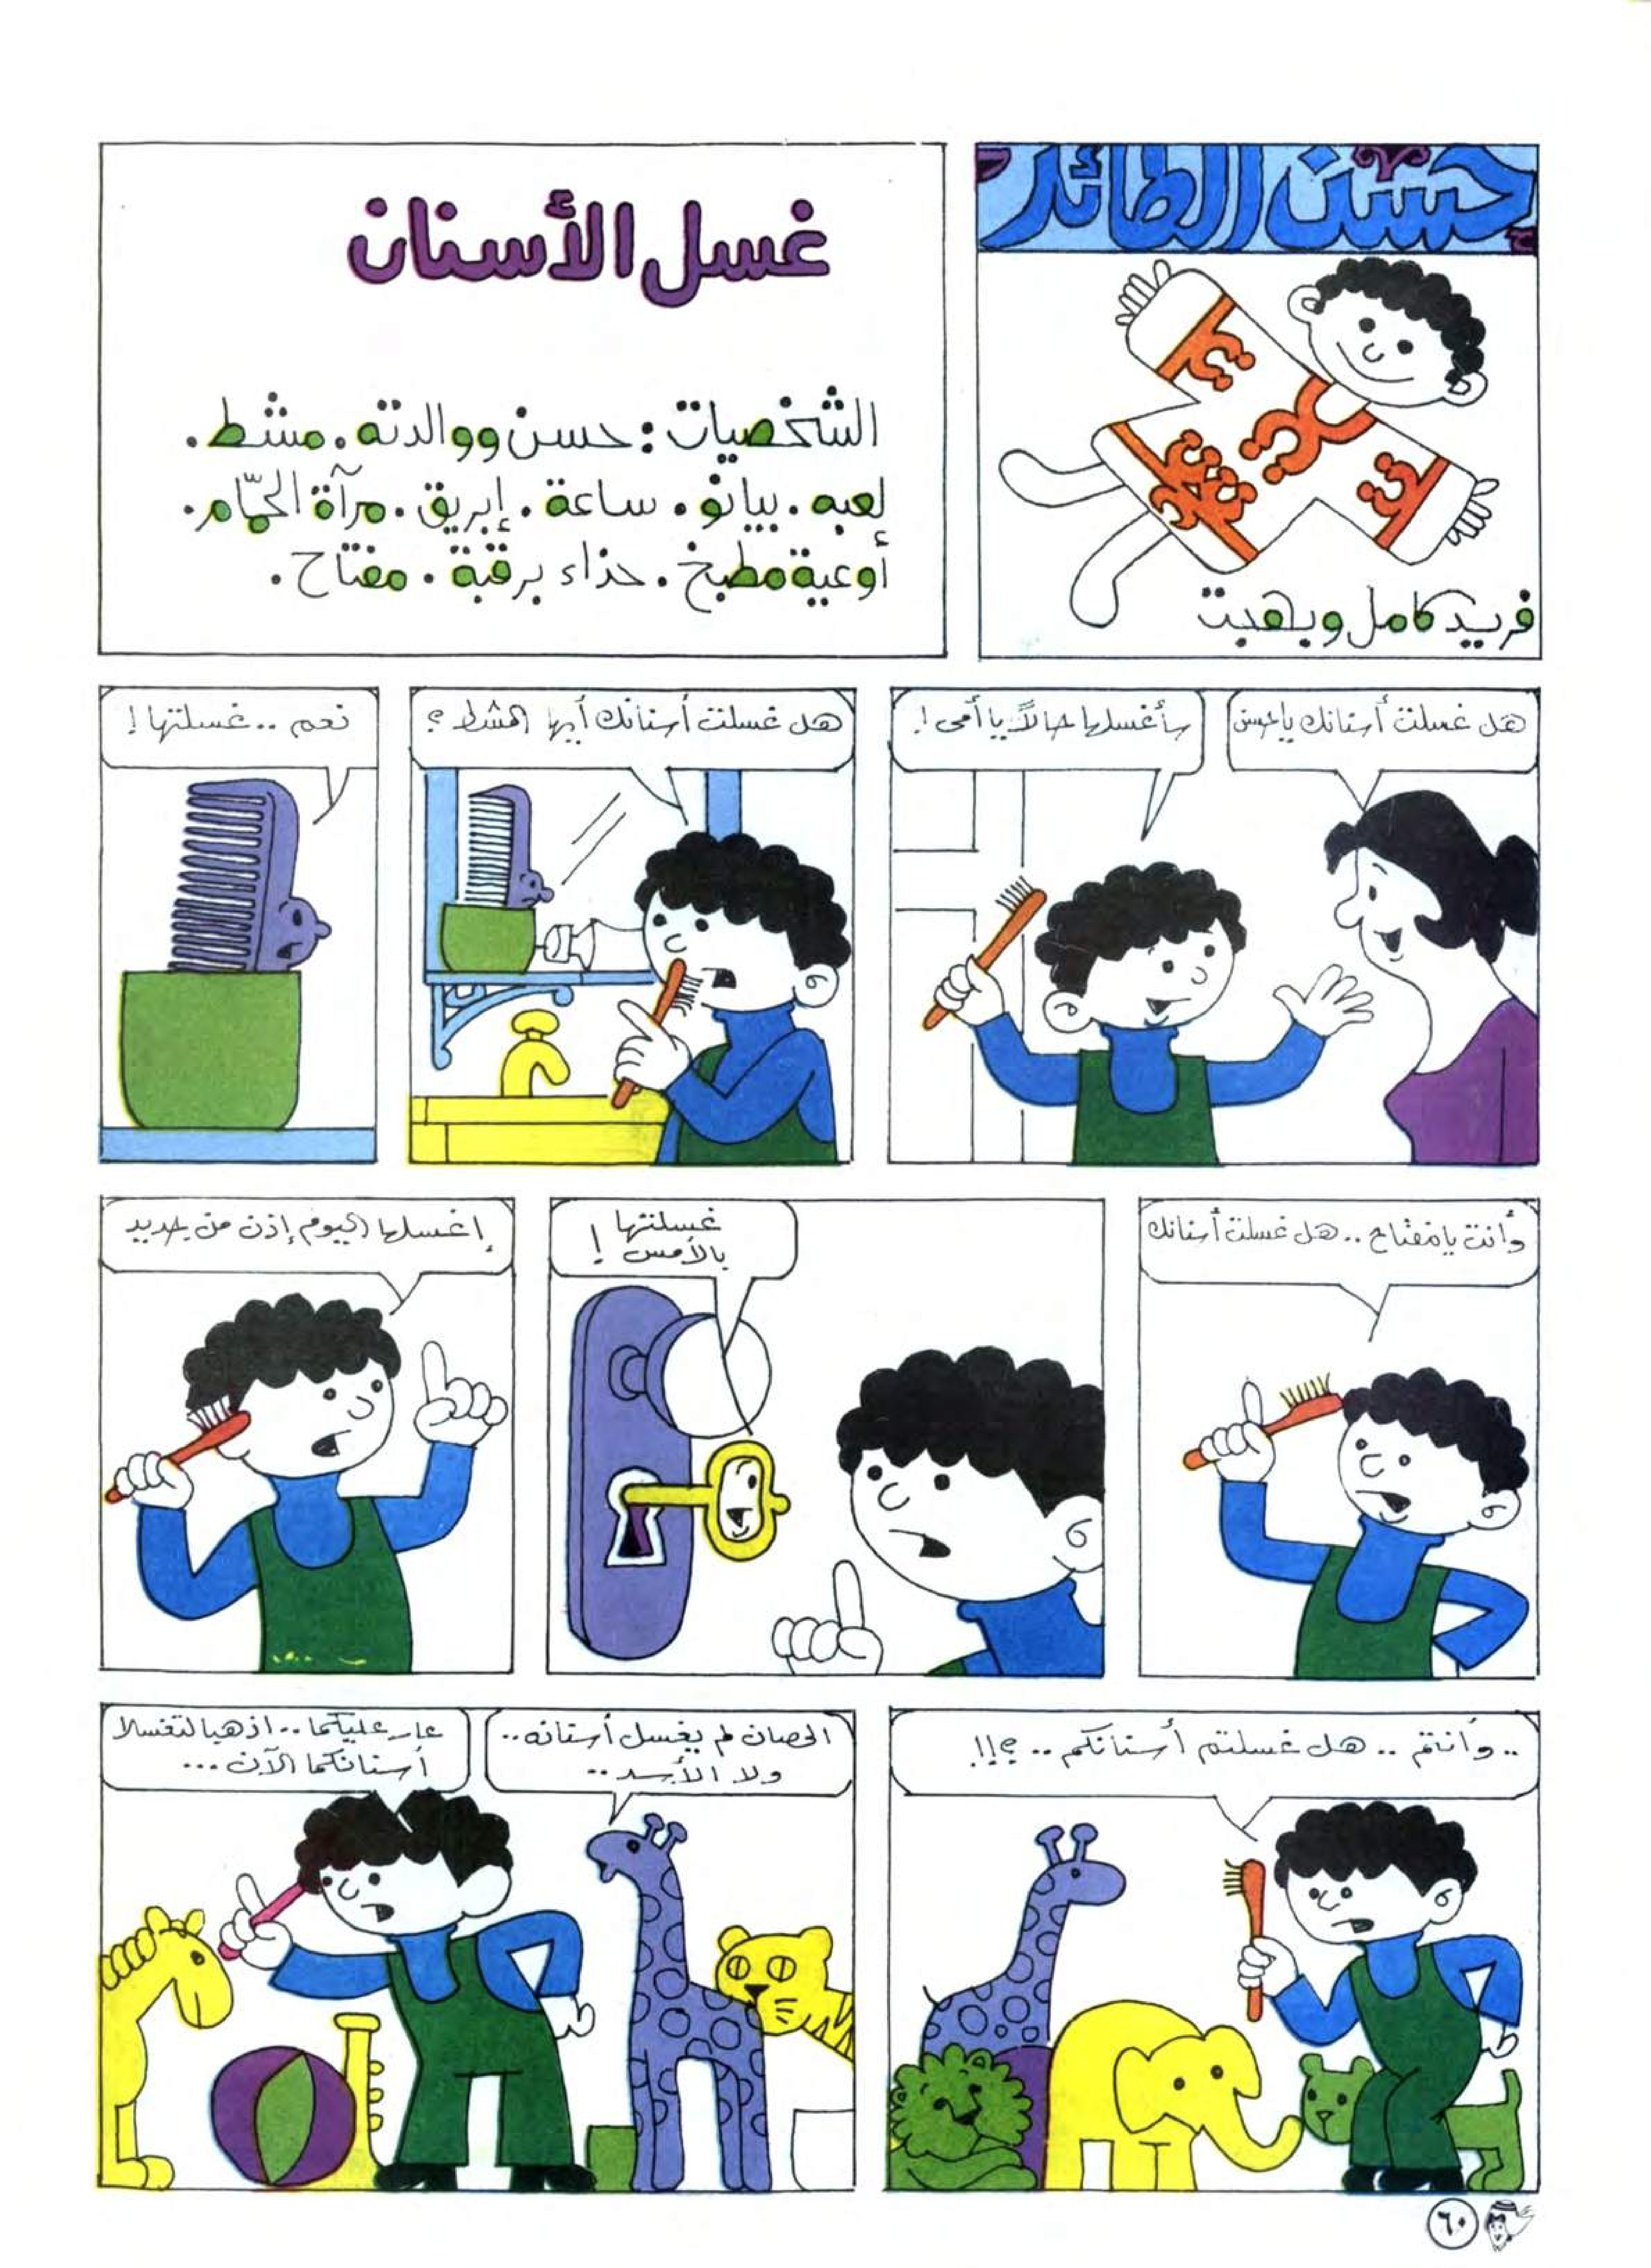 حسن الطائر
فريد كامل وبهجت
غسل الأسنان
الشخصيات: حسن ووالدته. مشط.
لعبه. بيانو. ساعة. إبريق. مرآة الحمّام.
أوعية مطبخ. حذاء برقبة. مفتاح.
هل غسلت أسنانك ياحسن
سأغسلها حالاً يا أمى!
هل غسلت أسنانك أيها المشط؟
نعم .. غسلتها!
وأنت يا مفتاح .. هل غسلت أسنانك
غسلتها
بالأمس!
إغسلها اليوم إذن من جديد
.. وأنتم .. هل غسلتم أسنانكم .. ؟!!
الحصان لم يغسل أسنانه ..
ولا الأسد ..
عار عليكما .. اذهبا لتغسلا
أسنانكما الآن ...
٦٠